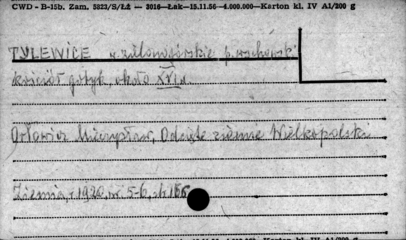 CWD - B-15b. Zam. 5823/S/ŁŻ — 2016—Łak—15.11.56—4.000.000—Karton kl. IV A1/200 g
TYLEWICE w. zielonogórskie p. wschowski
kościół gotyk. około XVI w.
Orłowicz Mieczysław, Odcięte ziemie Wielkopolski
Ziemia, r. 1920, nr. 5-6, str. 166